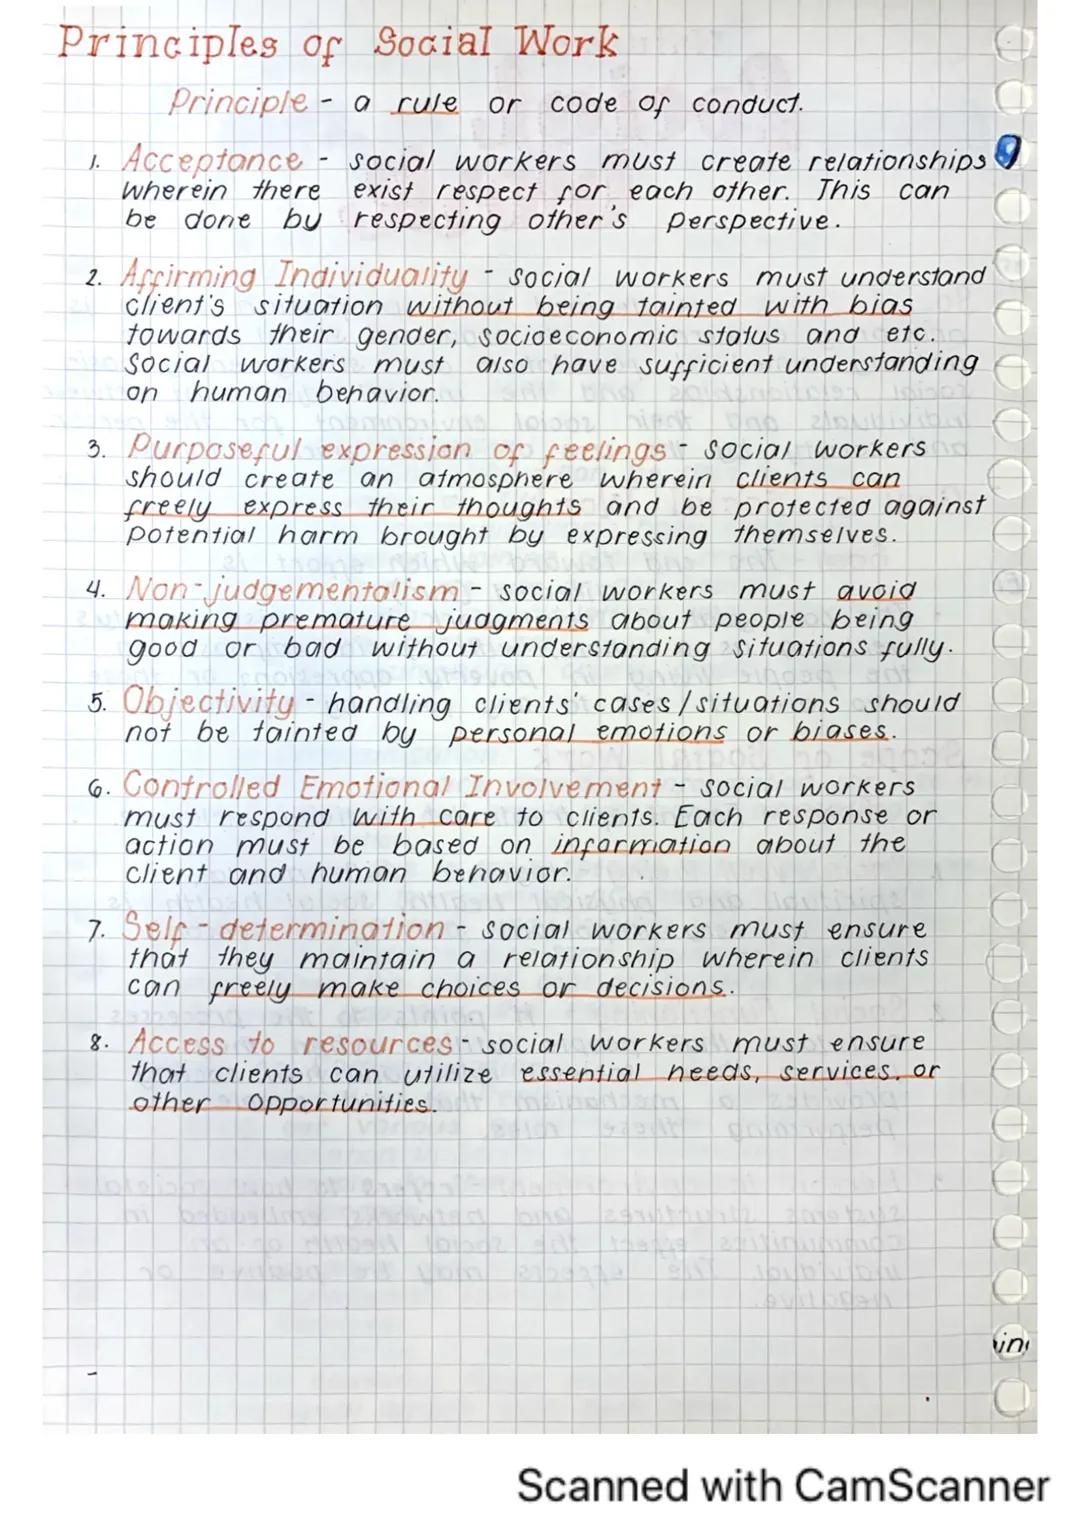 Principles of Social Work
Principle - a rule or code of conduct.
1. Acceptance - social workers must create relationships
wherein there exist respect for each other. This can
be done by respecting other's perspective.
2. Affirming Individuality - social workers must understand
client's situation without being tainted with bias
towards their gender, socioeconomic status and etc.
Social workers must also have sufficient understanding
on human behavior.
3. Purposeful expression of feelings - social workers
should create an atmosphere wherein clients can
freely express their thoughts and be protected against
potential harm brought by expressing themselves.
4. Non-judgementalism - social workers must avoid
making premature judgments about people being
good or bad without understanding situations fully.
5. Objectivity - handling clients' cases/situations should
not be tainted by personal emotions or biases.
6. Controlled Emotional Involvement - social workers
must respond with care to clients. Each response or
action must be based on information about the
client and human behavior.
7. Self-determination - social workers must ensure
that they maintain a relationship wherein clients
can freely make choices or decisions.
8. Access to resources - social workers must ensure
that clients can utilize essential needs, services, or
other opportunities.
Scanned with CamScanner